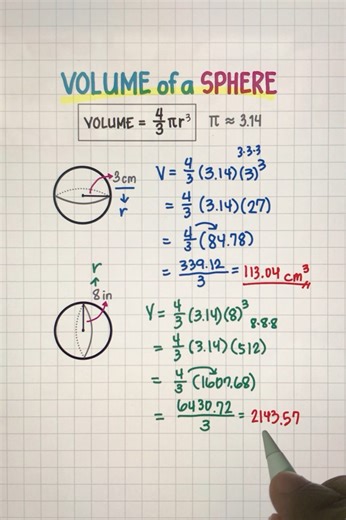 VOLUME of a SPHERE
VOLUME = 4/3 πr³ π ≈ 3.14
3cm
r
3·3·3
V = 4/3 (3.14)(3)³
= 4/3 (3.14)(27)
= 4/3 (84.78)
= 339.12/3 = 113.04 cm³
r
8in
V = 4/3 (3.14)(8)³
8·8·8
= 4/3 (3.14)(512)
= 4/3 (1607.68)
= 6430.72/3 = 2143.57